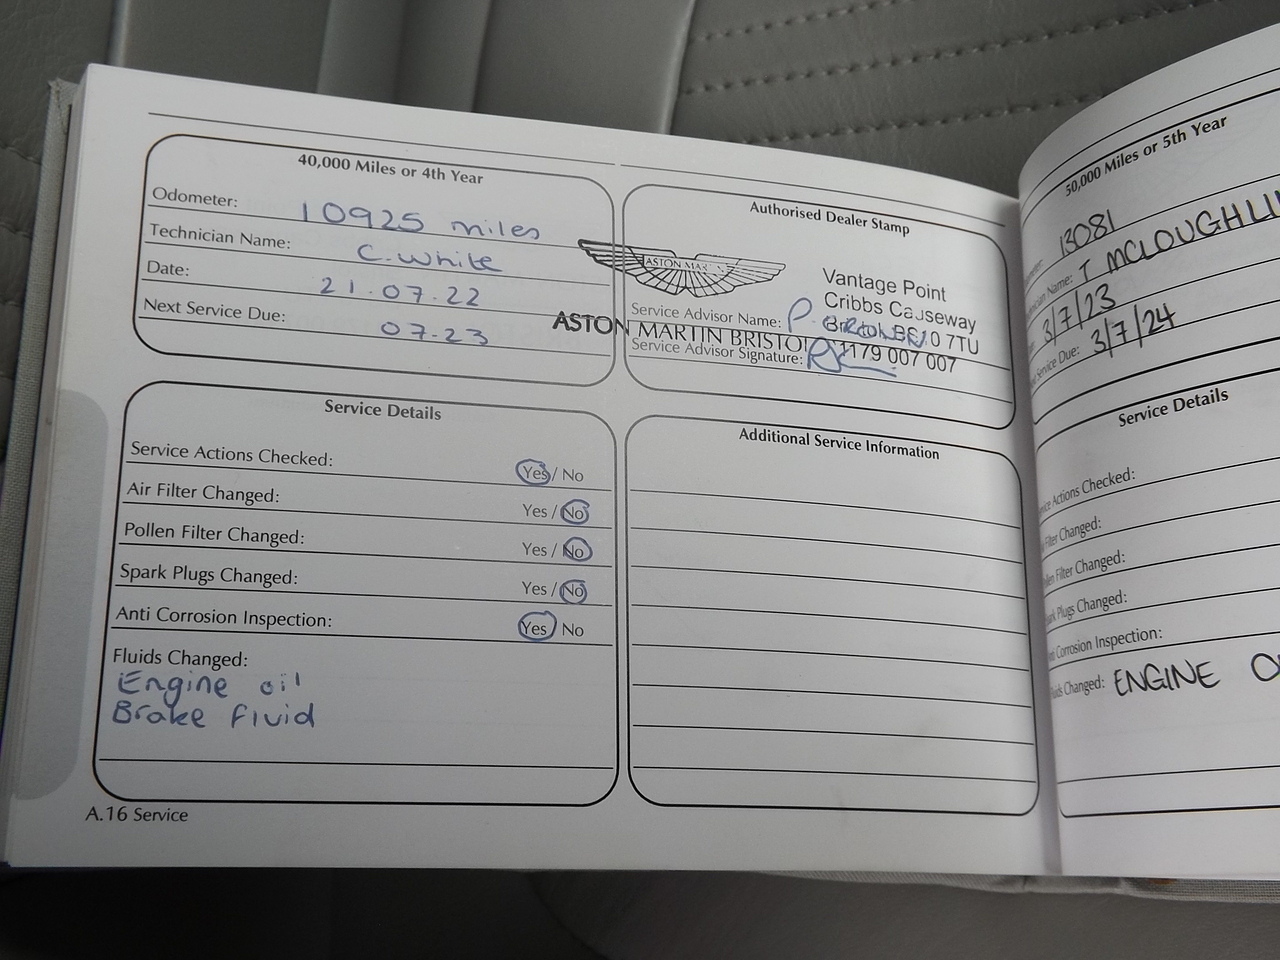 40,000 Miles or 4th Year
Odometer: 10925 miles
Technician Name: C. White
Date: 21.07.22
Next Service Due: 07-23
Authorised Dealer Stamp
ASTON MARTIN
Vantage Point
Cribbs Causeway
Bristol BS10 7TU
ASTON MARTIN BRISTOL 01179 007 007
Service Advisor Name: P.
Service Advisor Signature:
Service Details
Service Actions Checked: Yes / No
Air Filter Changed: Yes / No
Pollen Filter Changed: Yes / No
Spark Plugs Changed: Yes / No
Anti Corrosion Inspection: Yes / No
Fluids Changed:
Engine oil
Brake fluid
Additional Service Information
A.16 Service
50,000 Miles or 5th Year
13081
Name: T MCLOUGHLI
3/7/23
Service Due: 3/7/24
Service Details
Actions Checked:
Filter Changed:
Filter Changed:
Plugs Changed:
Corrosion Inspection:
Changed: ENGINE O